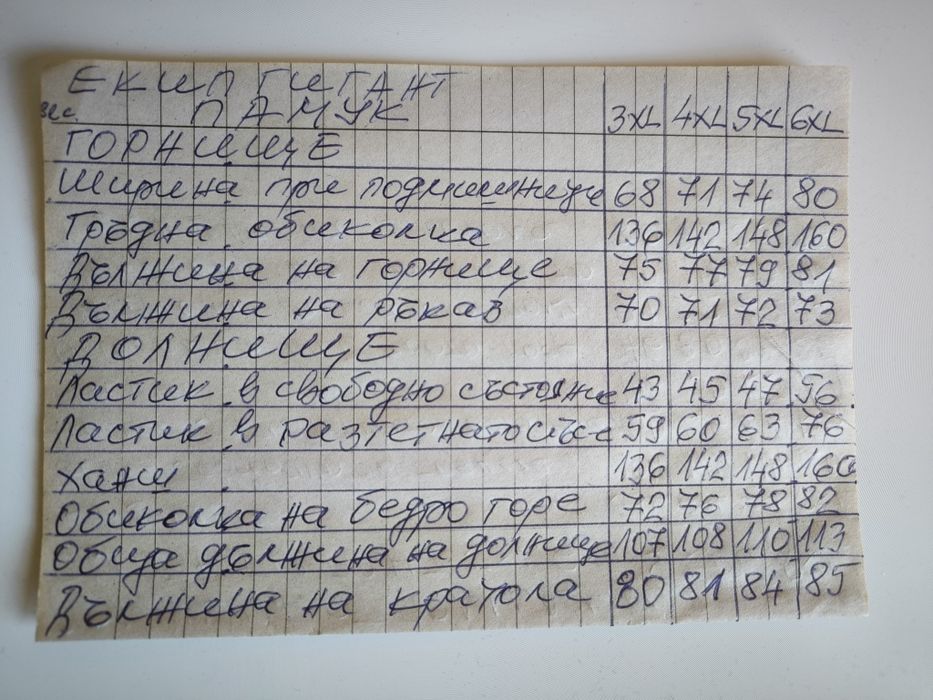 ЕКИП ГИГАНТ
ПАМУК 3XL 4XL 5XL 6XL
ГОРНИЩЕ
Ширина при подмишниците 68 71 74 80
Гръдна обиколка 136 142 148 160
Дължина на горнище 75 77 79 81
Дължина на ръкав 70 71 72 73
ДОЛНИЩЕ
Ластик в свободно състояние 43 45 47 56
Ластик в 59 60 63 76
Ханш 136 142 148 160
Обиколка на бедро горе 72 76 78 82
Обща дължина на долнище 107 108 110 113
Дължина на крачола 80 81 84 85